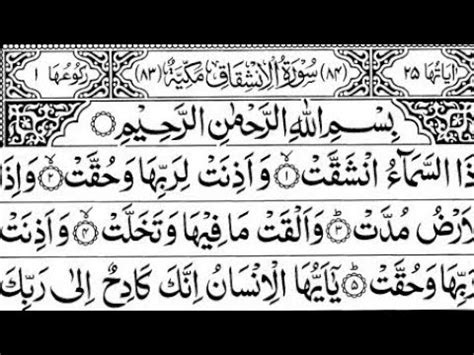 اٰيَاتُهَا ٢٥ (٨٤) سُوْرَةُ الْاِنْشِقَاقِ مَكِّيَّةٌ (٨٣) رُكُوْعُهَا ١
بِسْمِ اللّٰهِ الرَّحْمٰنِ الرَّحِيْمِ
ذَا السَّمَآءُ انْشَقَّتْ ۙ﴿١﴾ وَاَذِنَتْ لِرَبِّهَا وَحُقَّتْ ۙ﴿٢﴾ وَاِذَا
لْاَرْضُ مُدَّتْ ۙ﴿٣﴾ وَاَلْقَتْ مَا فِيْهَا وَتَخَلَّتْ ۙ﴿٤﴾ وَاَذِنَتْ
رَبِّهَا وَحُقَّتْ ؕ﴿٥﴾ يٰۤاَيُّهَا الْاِنْسَانُ اِنَّكَ كَادِحٌ اِلٰى رَبِّكَ